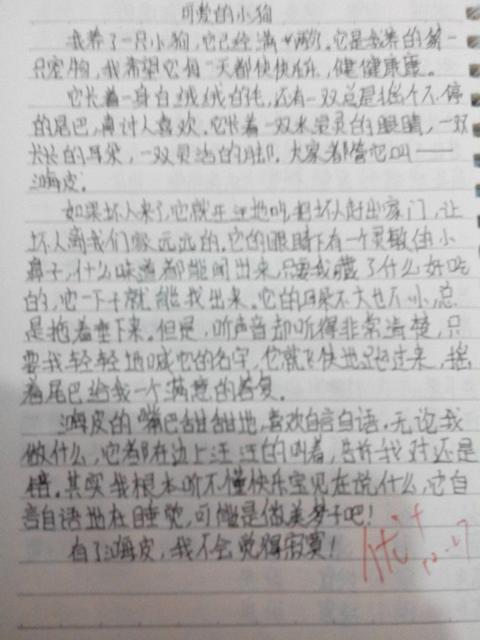 可爱的小狗
我养了一只小狗,它已经满岁了。它是我养的第一
只宠物,我希望它每一天都快快乐乐,健健康康。
它长着一身白绒绒的毛,还有一双总是摇个不停
的尾巴,真讨人喜欢。它长着一双水灵灵的眼睛,一双
长长的耳朵,一双灵活的脚。大家都管它叫——
嗨皮。
如果坏人来了,它就汪汪地叫,把坏人赶出家门,让
坏人离我们家远远的。它的眼睛下有一个灵敏的小
鼻子,什么味道都能闻出来,只要我藏了什么好吃
的,它一下子就能找出来。它的耳朵不大也不小,总
是拖着垂下来。但是,听声音却听得非常清楚,只
要我轻轻地喊它的名字,它就飞快地跑过来,摇
着尾巴给我一个满意的答复。
嗨皮的嘴巴甜甜地,喜欢自言自语。无论我
做什么,它都在边上汪汪的叫着,告诉我对还是
错。其实我根本听不懂快乐宝贝在说什么,它自
言自语地在睡觉,可能是做美梦了吧!
有了嗨皮,我不会觉得寂寞!
优+
12.17